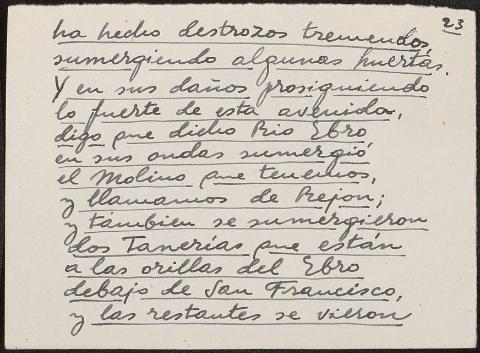 23
ha hecho destrozos tremendos,
sumergiendo algunas huertas.
Y en sus daños prosiguiendo
lo fuerte de esta avenida,
digo que dicho Rio Ebro
en sus ondas sumergió
el Molino que tenemos,
y llamamos de Rejon;
y tambien se sumergieron
dos Tanerías que están
a las orillas del Ebro
debajo de San Francisco,
y las restantes se vieron